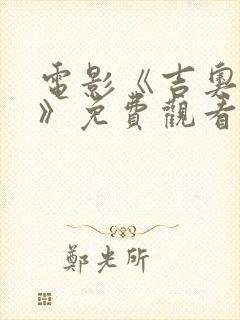 電影《吉奧
》免費觀看
鄭光所